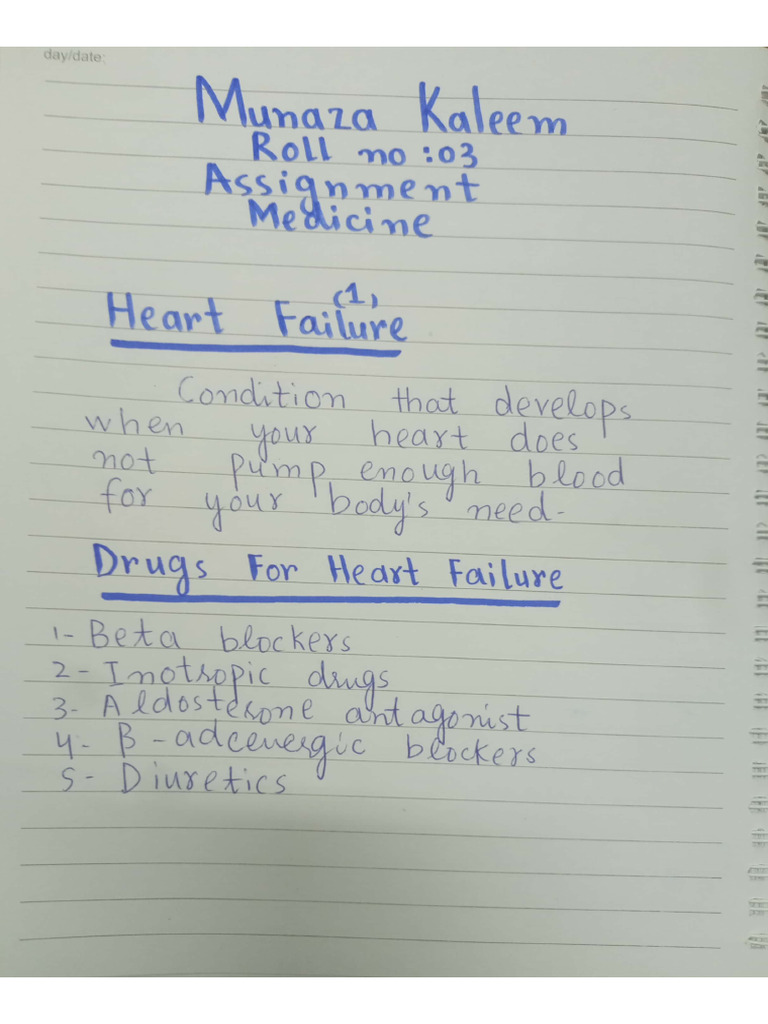 day/date:
Munaza Kaleem
Roll no :03
Assignment
Medicine
(1)
Heart Failure
Condition that develops
when your heart does
not pump enough blood
for your body's need-
Drugs For Heart Failure
1- Beta blockers
2- Inotropic drugs
3- Aldosterone antagonist
4- B-adcenergic blockers
5- Diuretics